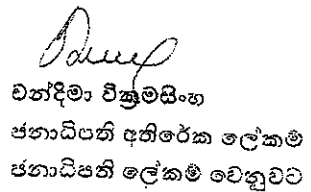 චන්දිමා වික්‍රමසිංහ
ජනාධිපති අතිරේක ලේකම්
ජනාධිපති ලේකම් වෙනුවට